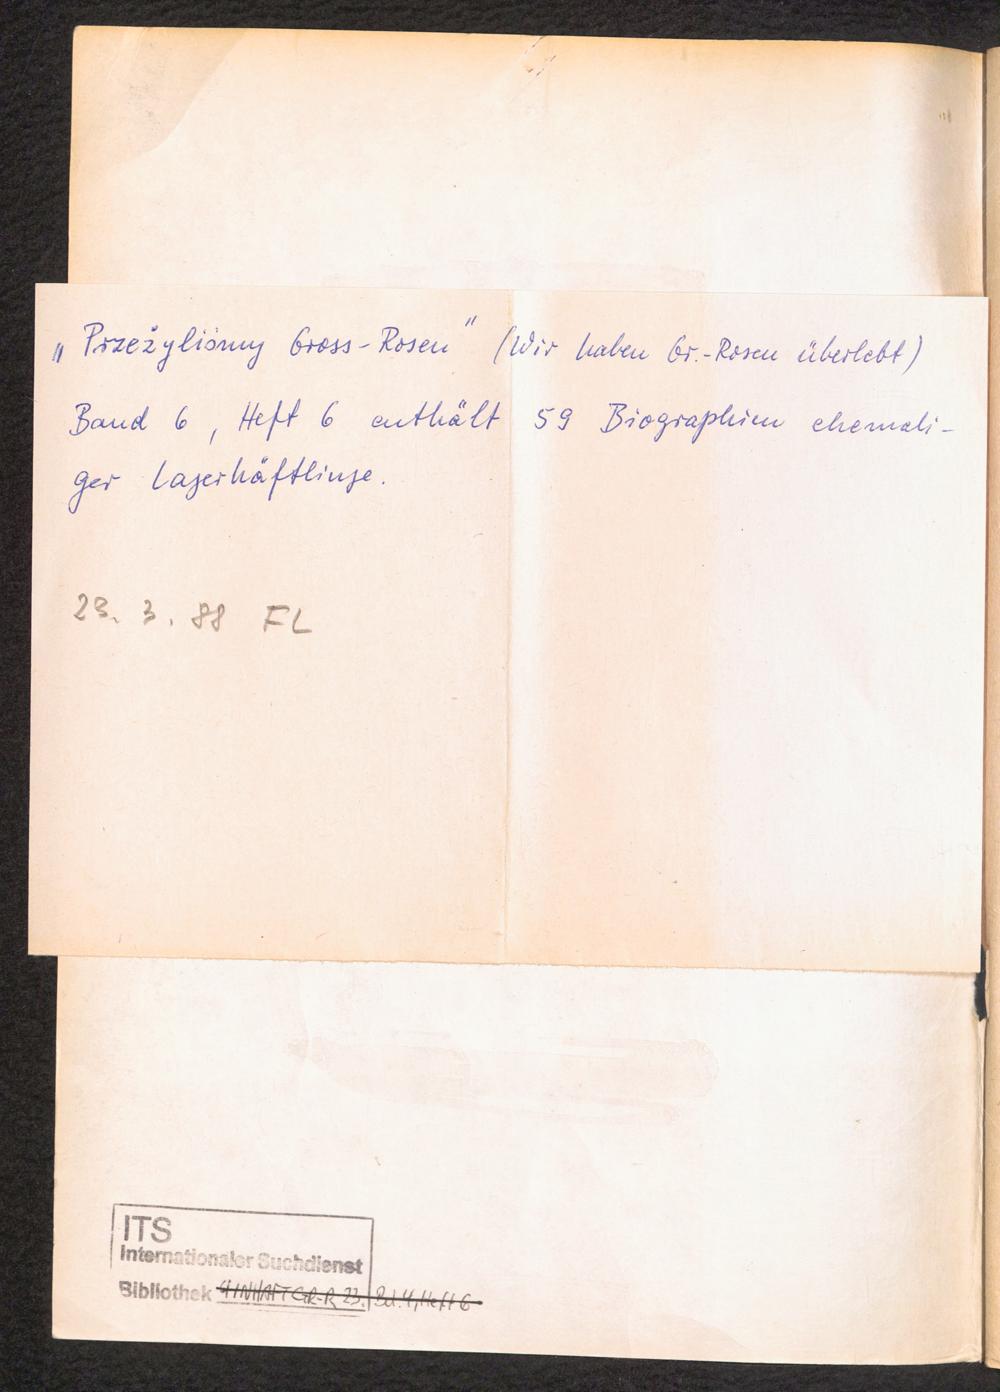 „Przeżyliśmy Gross-Rosen" (Wir haben Gr.-Rosen überlebt)
Band 6, Heft 6 enthält 59 Biographien ehemali-
ger Lagerhäftlinge.
23. 3. 88 FL
ITS
Internationaler Suchdienst
Bibliothek GR-R 23. Bd. 4, Heft 6